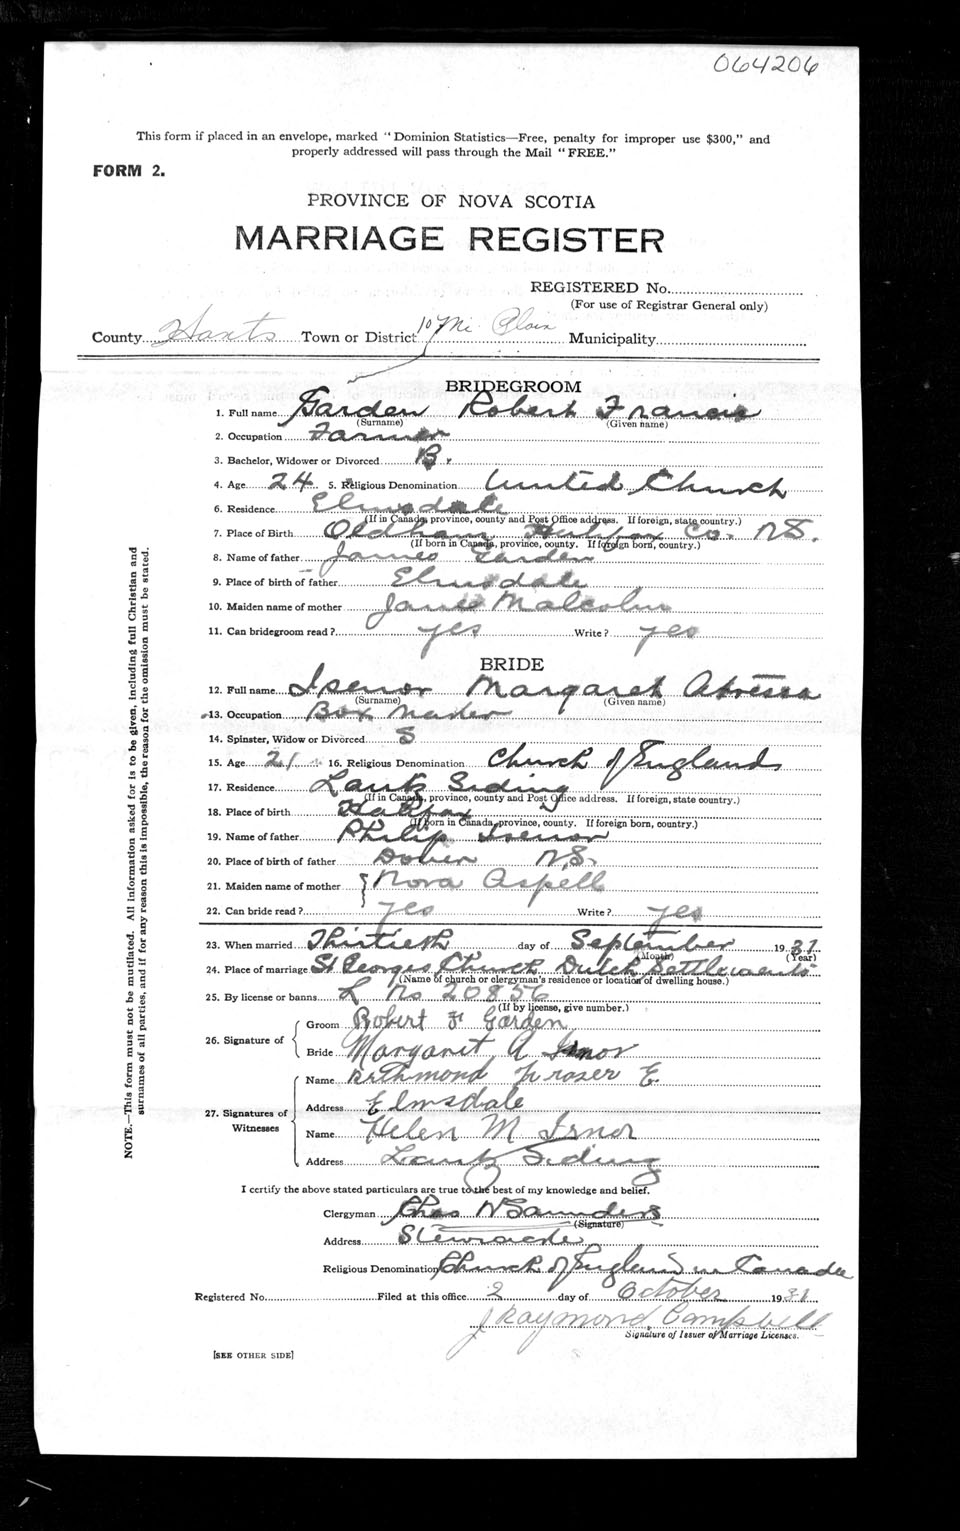 064206
This form if placed in an envelope, marked "Dominion Statistics—Free, penalty for improper use $300," and
properly addressed will pass through the Mail "FREE."
FORM 2.
PROVINCE OF NOVA SCOTIA
MARRIAGE REGISTER
REGISTERED No.
(For use of Registrar General only)
County Hants Town or District 10 Mi. Plain Municipality
BRIDEGROOM
1. Full name Garden Robert Francis
(Surname) (Given name)
2. Occupation Farmer
3. Bachelor, Widower or Divorced B.
4. Age 24 5. Religious Denomination United Church
6. Residence Elmsdale
(If in Canada, province, county and Post Office address. If foreign, state country.)
7. Place of Birth Oldham Halifax Co. N.S.
(If born in Canada, province, county. If foreign born, country.)
8. Name of father James Garden
9. Place of birth of father Elmsdale
10. Maiden name of mother Janie Malcolm
11. Can bridegroom read? yes Write? yes
BRIDE
12. Full name Isenor Margaret
(Surname) (Given name)
13. Occupation Box Maker
14. Spinster, Widow or Divorced S
15. Age 21 16. Religious Denomination Church of England
17. Residence Lantz Siding
(If in Canada, province, county and Post Office address. If foreign, state country.)
18. Place of birth Halifax
(If born in Canada, province, county. If foreign born, country.)
19. Name of father Philip Isenor
20. Place of birth of father Dover N.S.
21. Maiden name of mother Nora Aspell
22. Can bride read? yes Write? yes
23. When married Thirtieth day of September 1931
(Month) (Year)
24. Place of marriage St Georges Church Dutch Settlement
(Name of church or clergyman's residence or location of dwelling house.)
25. By license or banns L No 20856
(If by license, give number.)
26. Signature of
Groom Robert F. Garden
Bride Margaret A Isnor
27. Signatures of Witnesses
Name Fraser E.
Address Elmsdale
Name Helen M Isnor
Address Lantz Siding
I certify the above stated particulars are true to the best of my knowledge and belief.
Clergyman Chas N Saunders
(Signature)
Address Stewiacke
Religious Denomination Church of England in Canada
Registered No. Filed at this office 2 day of October 1931
J Raymond Campbell
Signature of Issuer of Marriage Licenses.
[SEE OTHER SIDE]
NOTE.—This form must not be mutilated. All information asked for is to be given, including full Christian and
surnames of all parties, and if for any reason this is impossible, the reason for the omission must be stated.